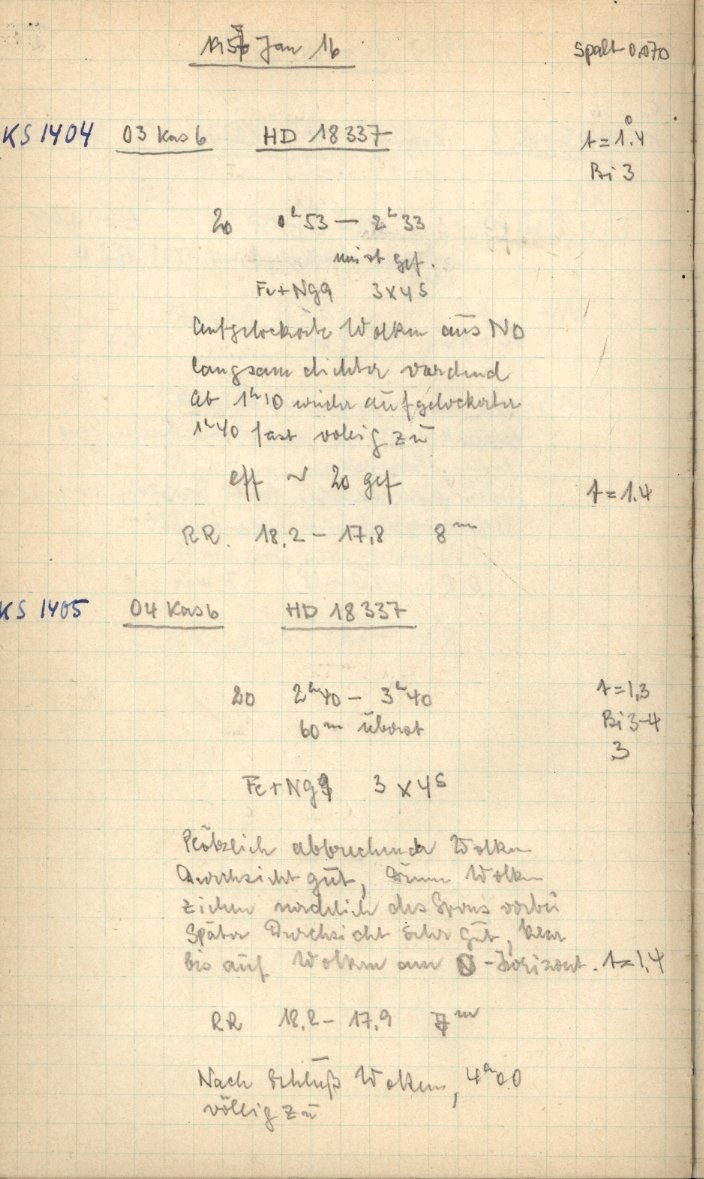 1957 Jan 16 Spalt 0,070
KS 1404 03 Kas b HD 18337 t=1.4
Bi 3
20 0h53 — 2h33
meist gef.
Fe+Ng9 3x4s
Aufgelockerte Wolken aus NO
langsam dichter werdend
ab 1h10 wieder aufgelockerter
1h40 fast völlig zu
eff ~ 20 gef t=1.4
RR. 18,2 – 17,8 8m
KS 1405 04 Kas b HD 18337
20 2h40 – 3h40 t=1,3
60m Bi 3-4
3
Fe+Ng9 3 x 4s
Plötzlich abbrechende Wolken
Durchsicht gut, dünne Wolken
ziehen nördlich des Sterns vorbei
Später Durchsicht sehr gut, klar
bis auf Wolken am -Horizont. t=1,4
RR 18,2 – 17,9 7m
Nach Schluß Wolken, 4h00
völlig zu